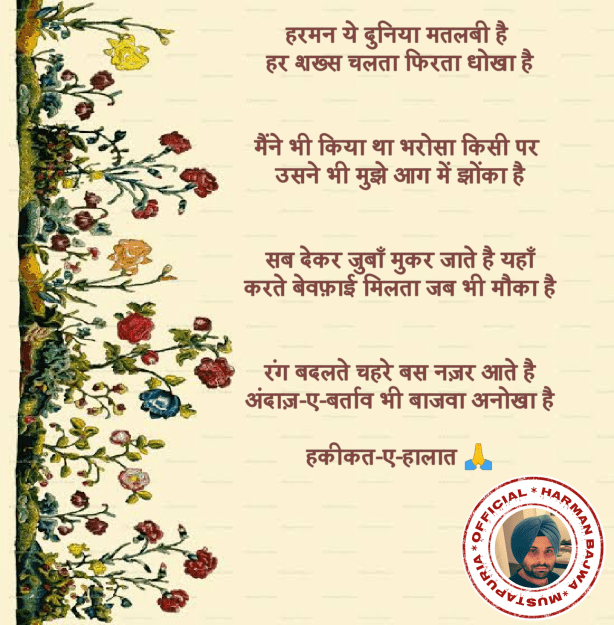 हरमन ये दुनिया मतलबी है
हर शख्स चलता फिरता धोखा है
मैंने भी किया था भरोसा किसी पर
उसने भी मुझे आग में झोंका है
सब देकर जुबाँ मुकर जाते है यहाँ
करते बेवफ़ाई मिलता जब भी मौका है
रंग बदलते चहरे बस नज़र आते है
अंदाज़-ए-बर्ताव भी बाजवा अनोखा है
हकीकत-ए-हालात 🙏
OFFICIAL * HARMAN BAJWA * MUSTAPURIA *